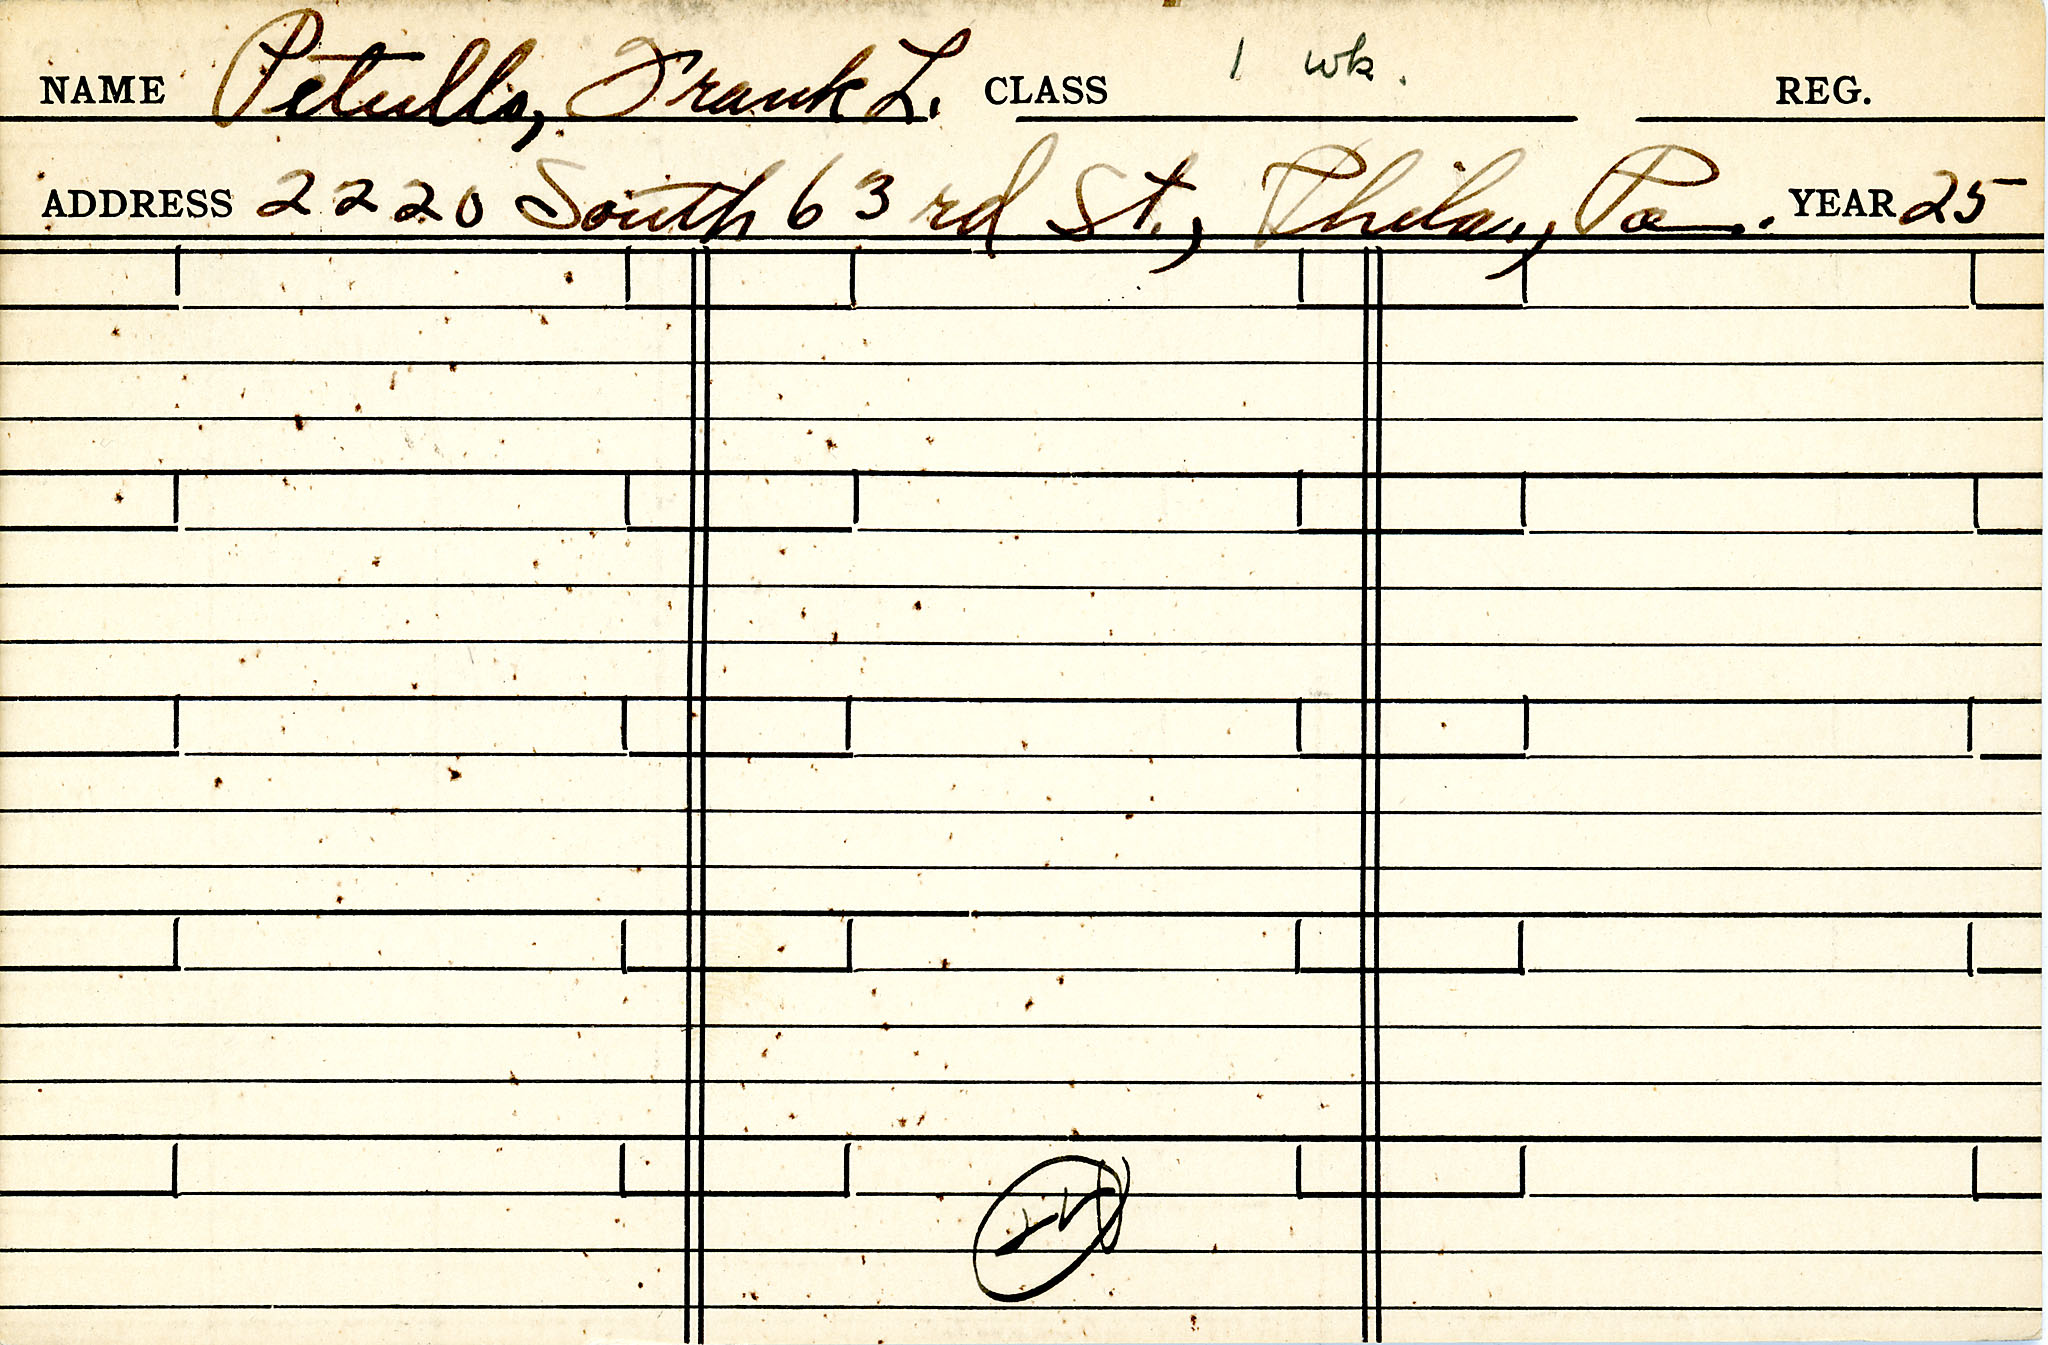 NAME Petulls, Frank L. CLASS 1 wk. REG.
ADDRESS 2220 South 63rd St., Phila., Pa. YEAR 25